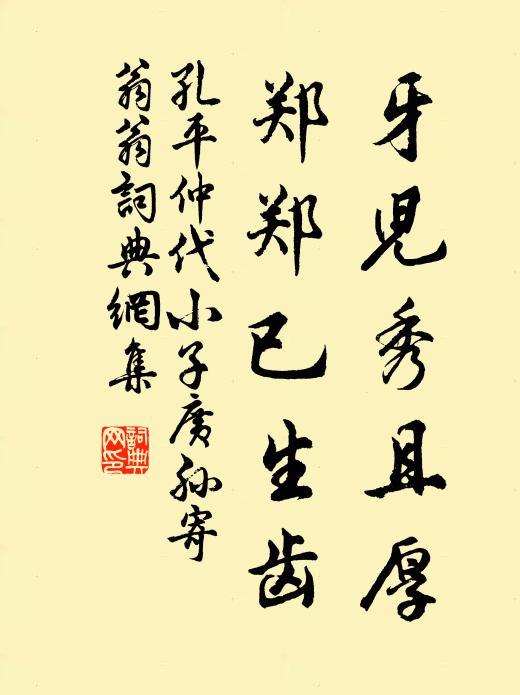 牙児秀且厚
郑郑已生齿
孔平仲代小子广孙寄
翁翁詞典網集
詞典网印